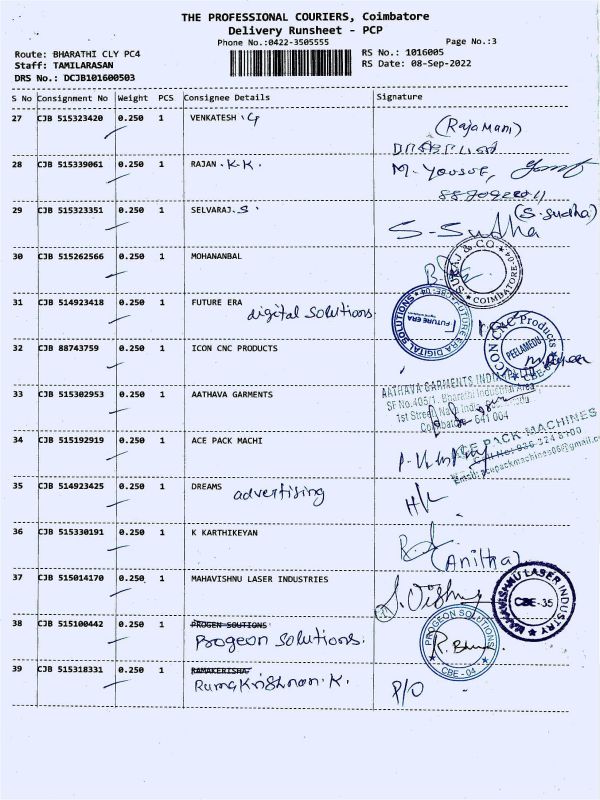 THE PROFESSIONAL COURIERS, Coimbatore
Delivery Runsheet - PCP
Phone No.:0422-3505555 Page No.:3
Route: BHARATHI CLY PC4 RS No.: 1016005
Staff: TAMILARASAN RS Date: 08-Sep-2022
DRS No.: DCJB101600503
S No Consignment No Weight PCS Consignee Details Signature
27 CJB 515323420 0.250 1 VENKATESH . G (Rajamani)
28 CJB 515339061 0.250 1 RAJAN . K.K. M. Yousuf,
29 CJB 515323351 0.250 1 SELVARAJ. S. (S. Sudha)
S-Sudha
30 CJB 515262566 0.250 1 MOHANANBAL
SURAJ & CO COIMBATORE-04
31 CJB 514923418 0.250 1 FUTURE ERA digital solutions.
FUTURE ERA DIGITAL SOLUTIONS CBE-04
FUTURE ERA
32 CJB 88743759 1 ICON CNC PRODUCTS
ICON CNC Products PEELAMEDU CBE-04
33 CJB 515302953 0.250 1 AATHAVA GARMENTS
AATHAVA GARMENTS INDIA
SF No.405/1, Bharathi Industrial Area
1st Street,
Coimbatore - 641 004
34 CJB 515192919 0.250 1 ACE PACK MACHI
ACE PACK MACHINES
35 CJB 514923425 0.250 1 DREAMS advertising
36 CJB 515330191 0.250 1 K KARTHIKEYAN
(Anitha)
37 CJB 515014170 0.250 1 MAHAVISHNU LASER INDUSTRIES
MAHAVISHNU LASER INDUSTRY CBE-35
38 CJB 515100442 0.250 1 PROGEN SOUTIONS
Progeon Solutions.
PROGEON SOLUTIONS CBE-04
39 CJB 515318331 0.250 1 RAMAKERISHA
Ramakrishnan. K. P/O